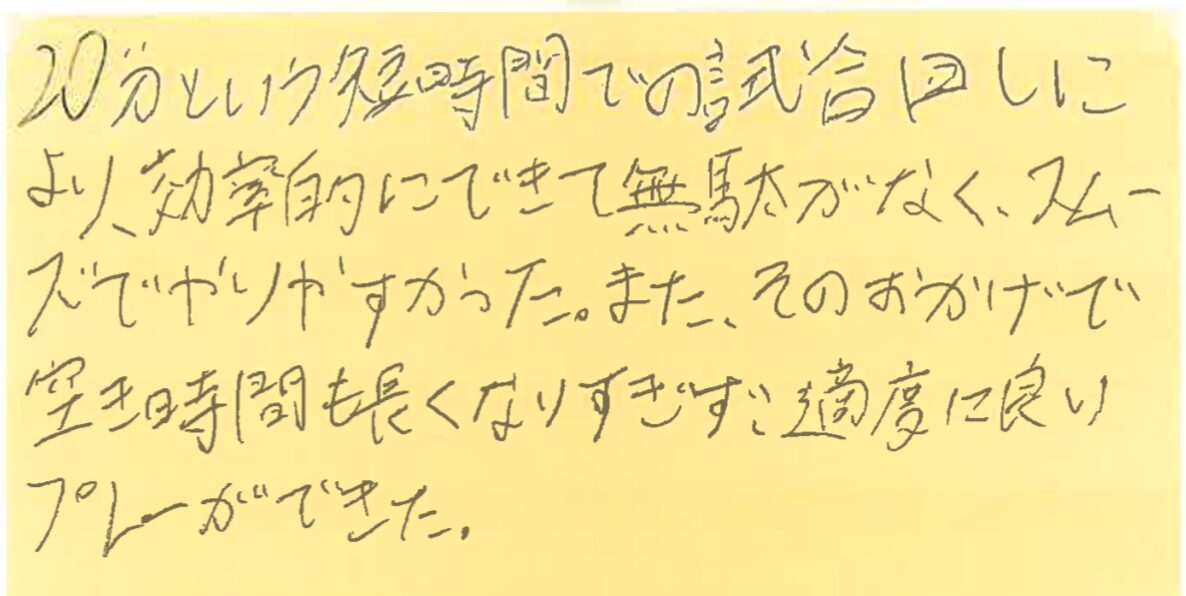 20分という短時間での試合回しに
より、効率的にできて無駄がなく、スムー
ズでやりやすかった。また、そのおかげで
空き時間も長くなりすぎず、適度に良い
プレーができた。